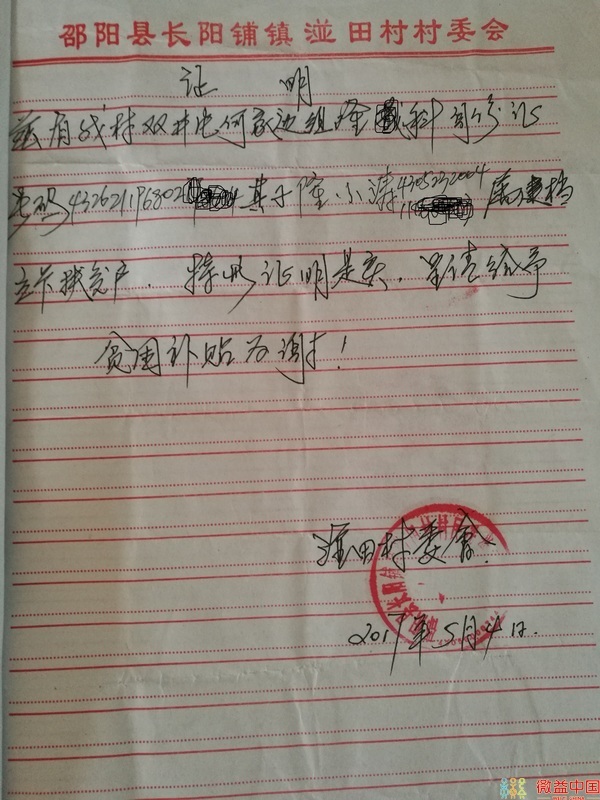 邵阳县长阳铺镇湴田村村委会
证 明
兹有我村双井屯何家边组隆 科 身份证
号码432621196802 其子隆小涛4305232004 属建档
立卡扶贫户，特此证明是实，里请给予
贫困补贴为谢！
湴田村委会.
2017年5月4日.
微益中国